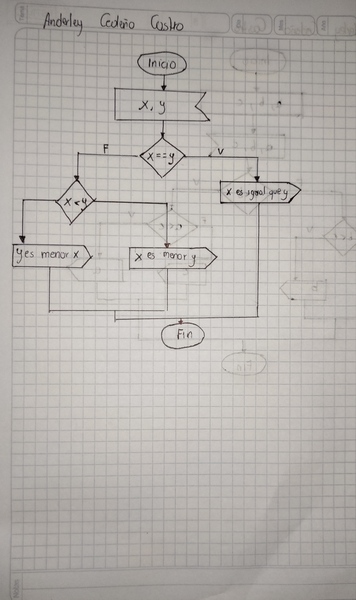 Anderley Cedeño Castro
Inicio
x, y
x == y
F
V
x es igual que y
x < y
y es menor x
x es menor y
Fin